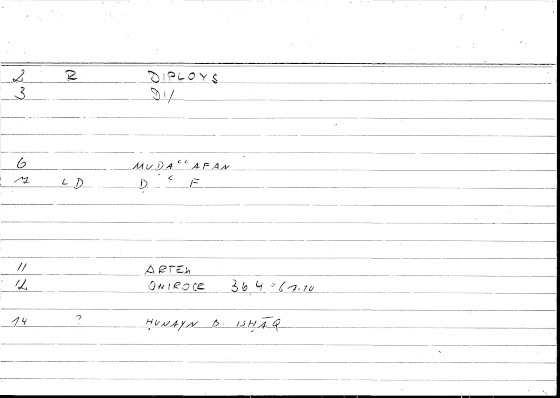 2 R DIPLOYS
3 DI/
6 MUḌAʿʿAFAN
7 LD Ḍ ʿ F
11 ARTEM
12 ONIROCE 36,4
14 ? ḤUNAYN B. ISḤĀQ